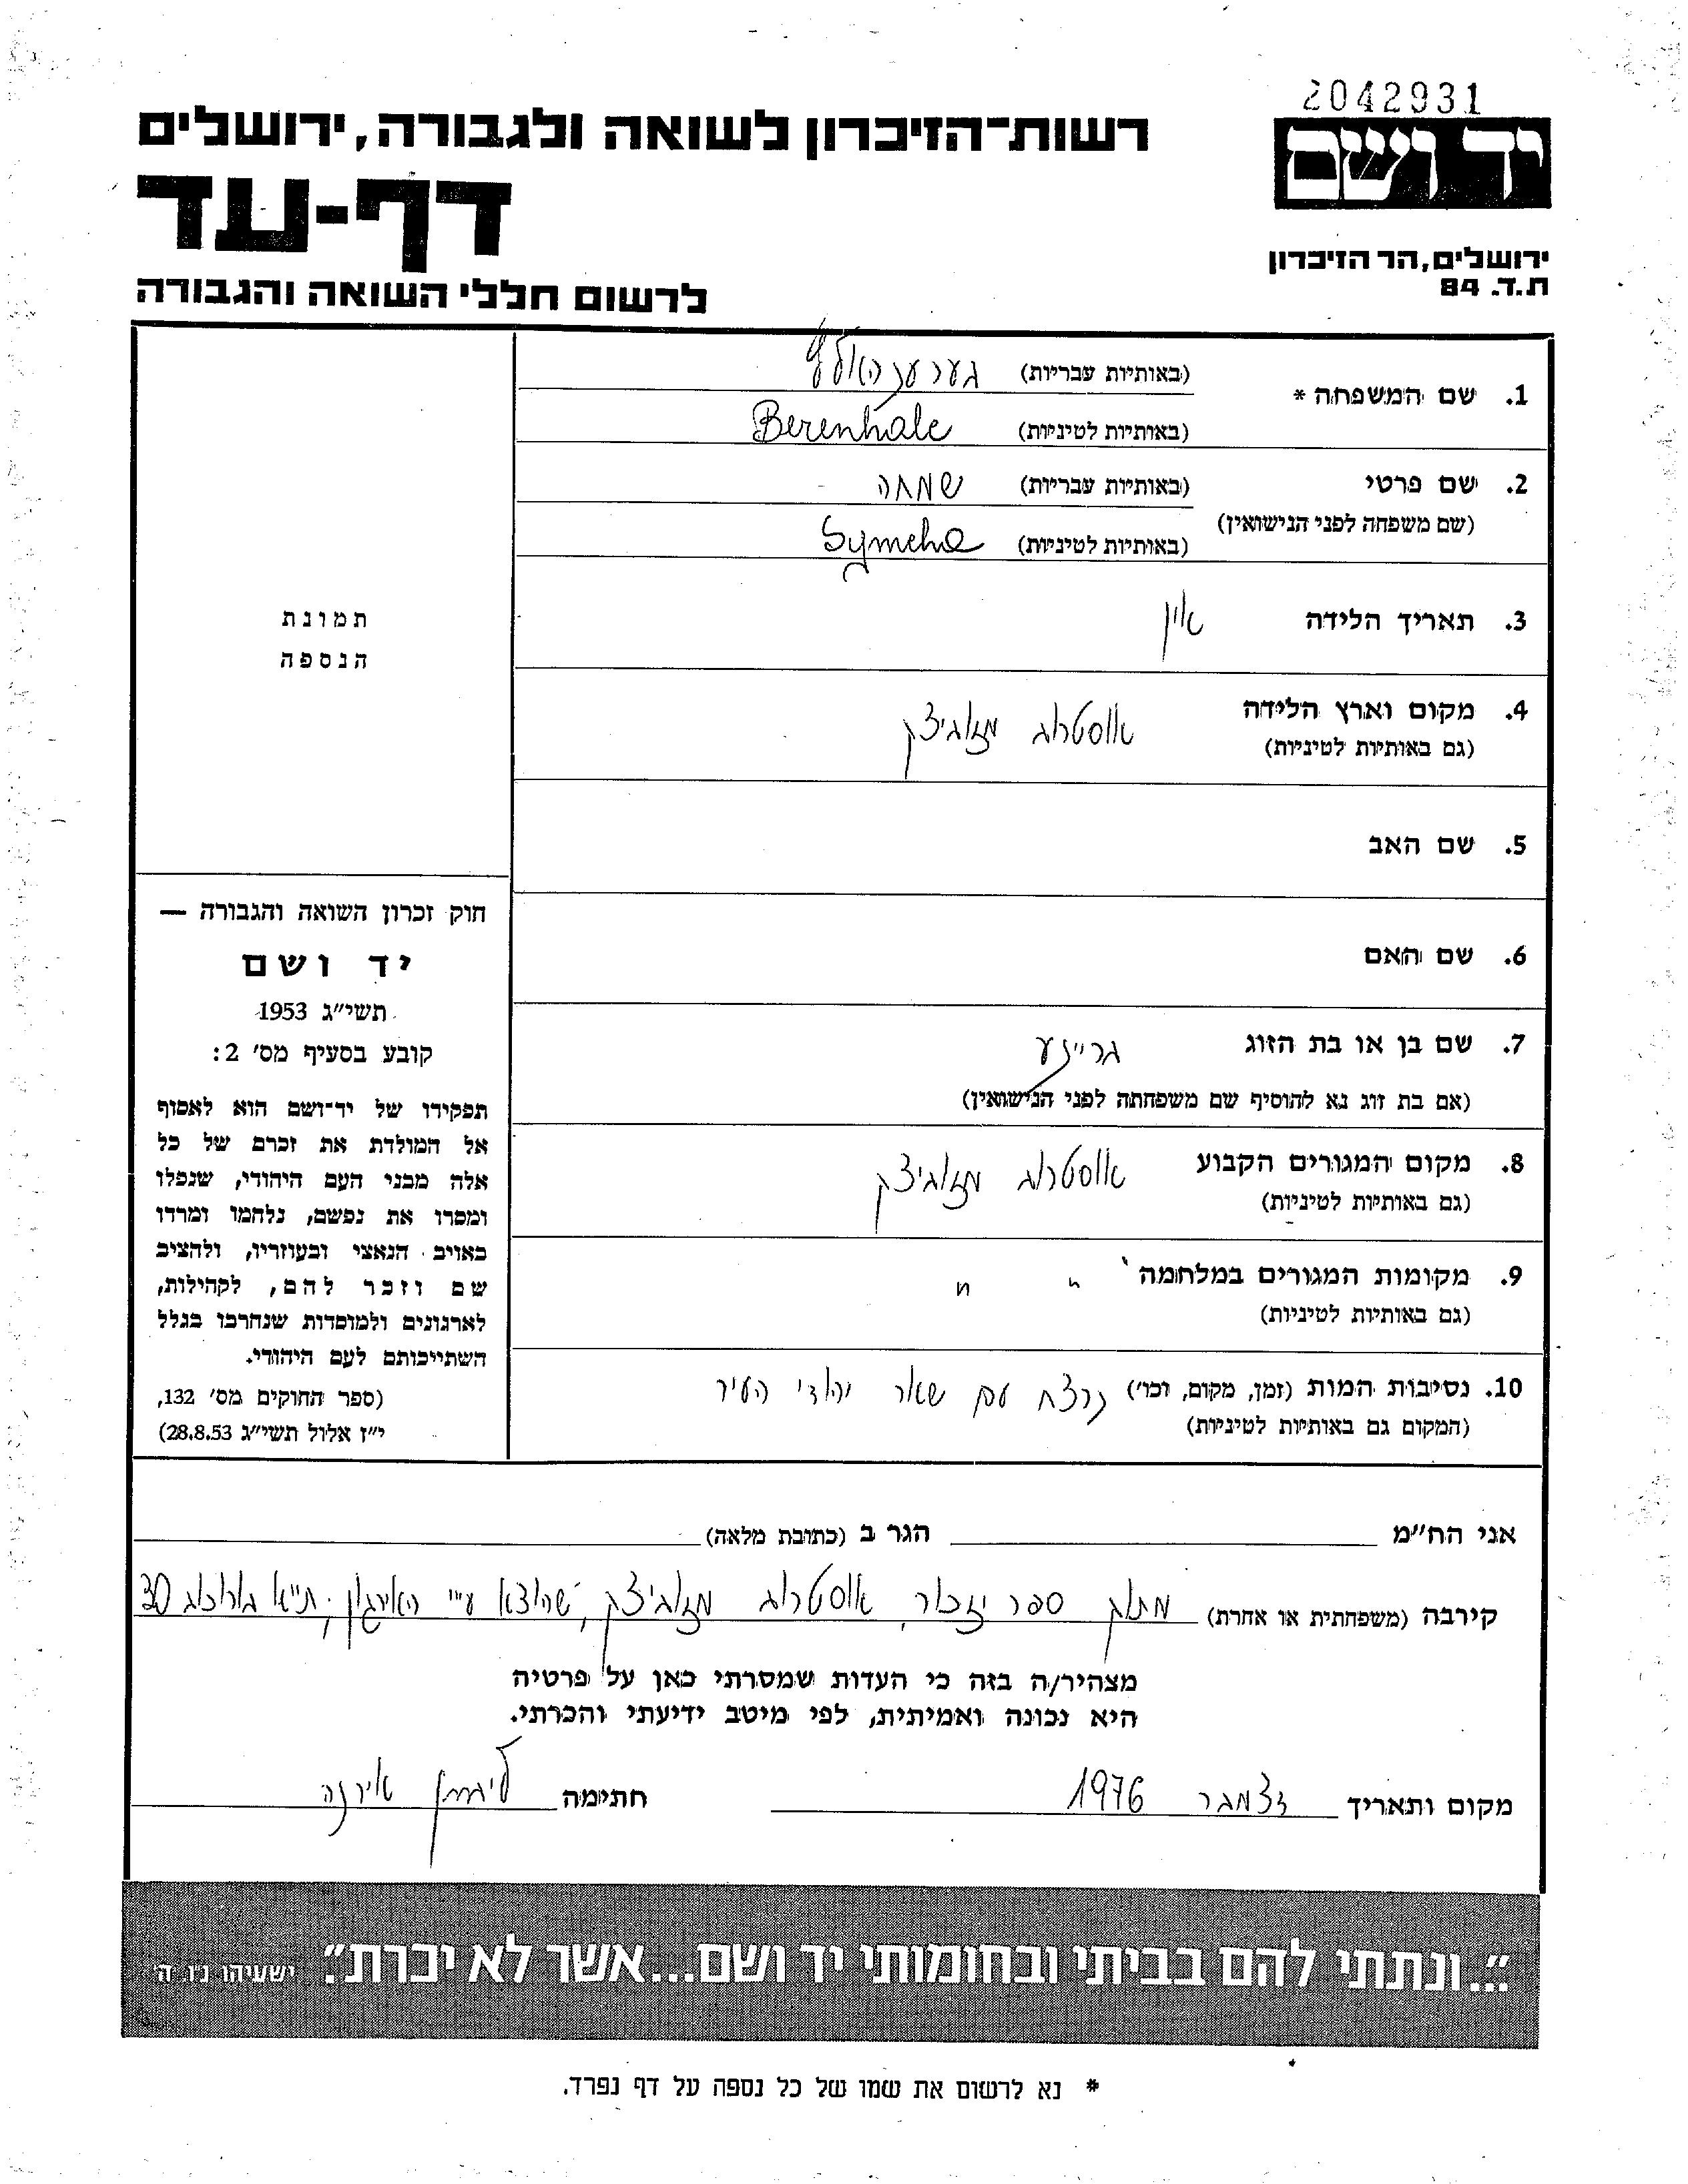 2042931
יד ושם
רשות־הזיכרון לשואה ולגבורה, ירושלים
דף-עד
ירושלים, הר הזיכרון
ת.ד. 84
לרשום חללי השואה והגבורה
1. שם המשפחה *
(באותיות עבריות)
(באותיות לטיניות) Berenhale
2. שם פרטי (באותיות עבריות) שמחה
(שם משפחה לפני הנישואין)
(באותיות לטיניות) Symcha
3. תאריך הלידה אין
4. מקום וארץ הלידה אוסטרוב מזוביצק
(גם באותיות לטיניות)
5. שם האב
6. שם האם
7. שם בן או בת הזוג
(אם בת זוג נא להוסיף שם משפחתה לפני הנישואין)
8. מקום המגורים הקבוע אוסטרוב מזוביצק
(גם באותיות לטיניות)
9. מקומות המגורים במלחמה " "
(גם באותיות לטיניות)
10. נסיבות המות (זמן, מקום, וכו') נרצח עם שאר יהודי העיר
(המקום גם באותיות לטיניות)
תמונת
הנספה
חוק זכרון השואה והגבורה —
יד ושם
תשי"ג 1953
קובע בסעיף מס' 2:
תפקידו של יד־ושם הוא לאסוף
אל המולדת את זכרם של כל
אלה מבני העם היהודי, שנפלו
ומסרו את נפשם, נלחמו ומרדו
באויב הנאצי ובעוזריו, ולהציב
שם וזכר להם, לקהילות,
לארגונים ולמוסדות שנחרבו בגלל
השתייכותם לעם היהודי.
(ספר החוקים מס' 132,
י"ז אלול תשי"ג 28.8.53)
אני הח"מ הגר ב (כתובת מלאה)
קירבה (משפחתית או אחרת) מתוך ספר יזכור, אוסטרוב מזוביצק, שהוצא ע"י הארגון, ת"א 30
מצהיר/ה בזה כי העדות שמסרתי כאן על פרטיה
היא נכונה ואמיתית, לפי מיטב ידיעתי והכרתי.
מקום ותאריך דצמבר 1976 חתימה אירנה
"...ונתתי להם בביתי ובחומותי יד ושם...אשר לא יכרת". ישעיהו נ"ו ה'
* נא לרשום את שמו של כל נספה על דף נפרד.